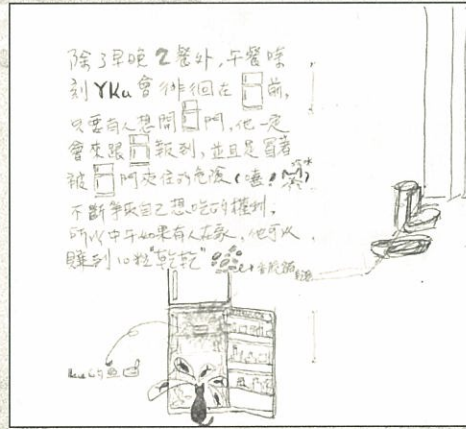 除了早晚2餐外,午餐時
刻YKu會徘徊在前,
只要有人想開門,他一定
會來跟報到,並且是冒著
被門夾住的危險(噓!)
不斷爭取自己想吃的權利,
所以中午如果有人在家,他可以
賺到10粒"乾乾"